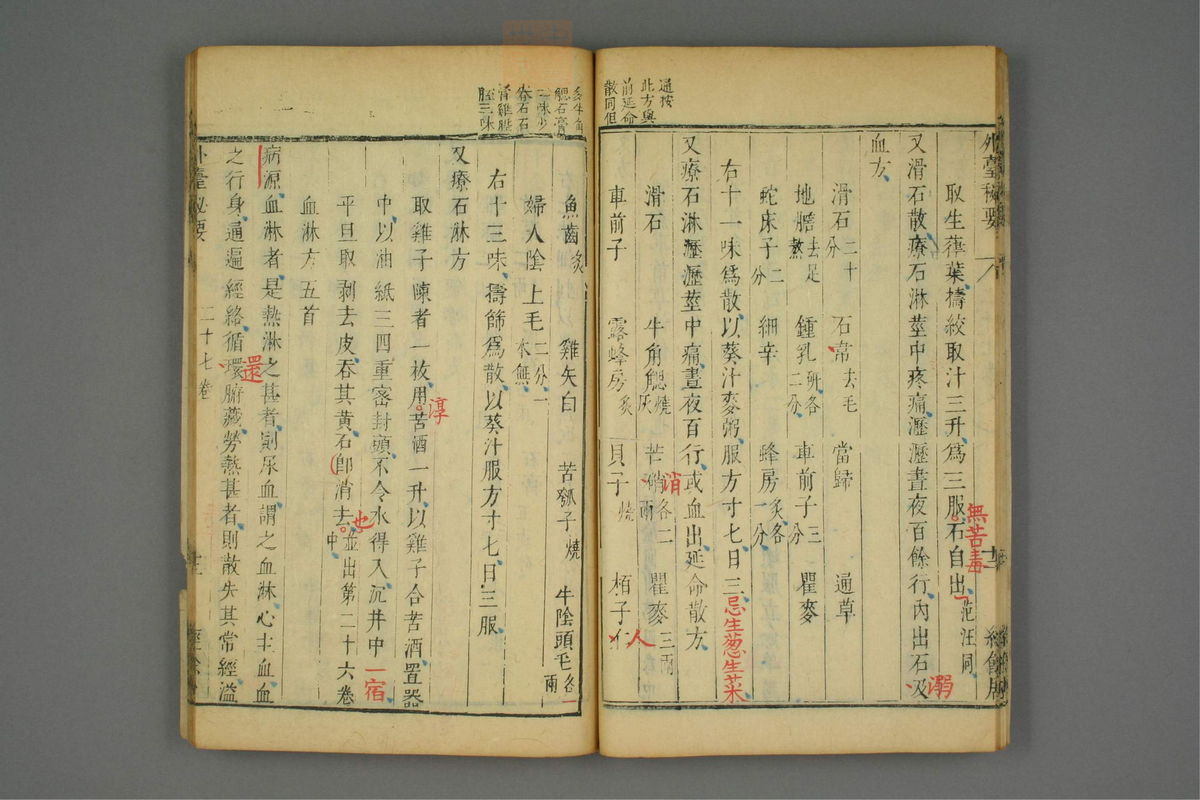 外臺秘要
取生葎葉擣絞取汁三升爲三服石自出范汪同
無苦毒
又滑石散療石淋莖中疼痛瀝瀝晝夜百餘行内出石及
溺
血方
滑石二十分 石韋去毛 當歸 通草
地膽去足熬 鍾乳研各二分 車前子三分 瞿麥
蛇床子二分 細辛 蜂房炙各一分
右十一味爲散以葵汁麥粥服方寸七日三
忌生葱生菜
又療石淋瀝瀝莖中痛晝夜百行或血出延命散方
通按此方與前延命散同但
滑石 牛角䚡燒灰 苦硝各二兩 瞿麥三兩
消
車前子 露蜂房炙 貝子燒 栢子
人
多牛角䚡石膏二味少石
雞
三味
魚齒炙 雞矢白 苦瓠子燒 牛陰頭毛各一兩
婦人陰上毛二分一本無
右十三味擣篩爲散以葵汁服方寸七日三服
又療石淋方
取雞子陳者一枚用苦酒一升以雞子合苦酒置器
淳
中以油紙三四重密封頭不令水得入沉井中
一宿
平旦取剥去皮吞其黄石即消去並出第二十六卷
也
中
血淋方五首
病源血淋者是熱淋之甚者則尿血謂之血淋心主血血
之行身通遍經絡循環腑藏勞熱甚者則散失其常經溢
還
外臺秘要 二十七卷